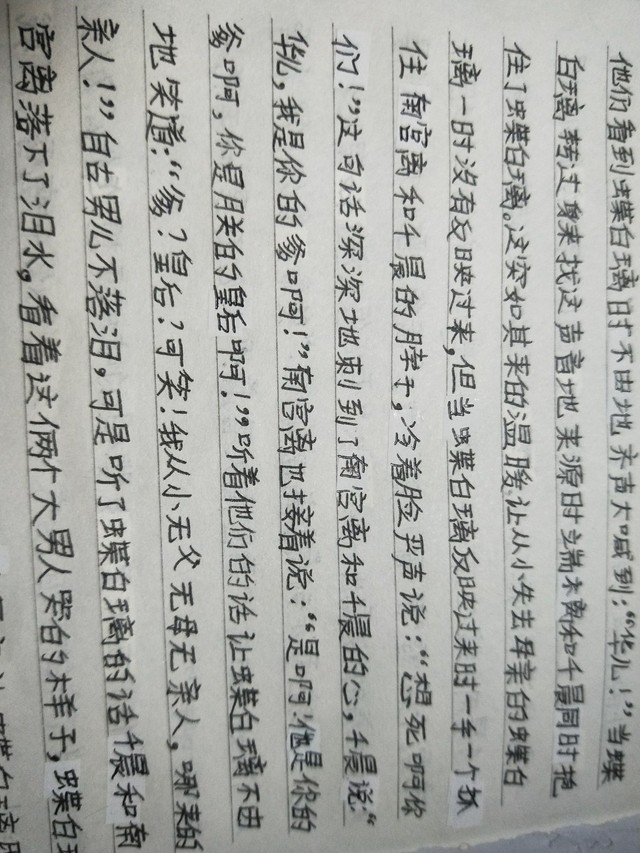 他们看到蝶白璃时不由地齐声大喊到:“华儿!”当蝶
白璃转过身来找这声音地来源时端木离和千晨同时抱
住了蝶白璃。这突如其来的温暖让从小失去母亲的蝶白
璃一时没有反映过来,但当蝶白璃反映过来时一手一个抓
住南宫离和千晨的脖子,冷着脸严声说:“想死啊你
们!”这句话深深地刺到了南宫离和千晨的心,千晨说:“
华儿,我是你的爹啊!”南宫离也接着说:“是啊他是你的
爹啊,你是月关的皇后啊!”听着他们的话让蝶白璃不由
地笑道:“爹?皇后?可笑!我从小无父无母无亲人,哪来的
亲人!”自古男儿不落泪,可是听了蝶白璃的话千晨和南
宫离落下了泪水,看着这俩个大男人哭的样子,蝶白璃